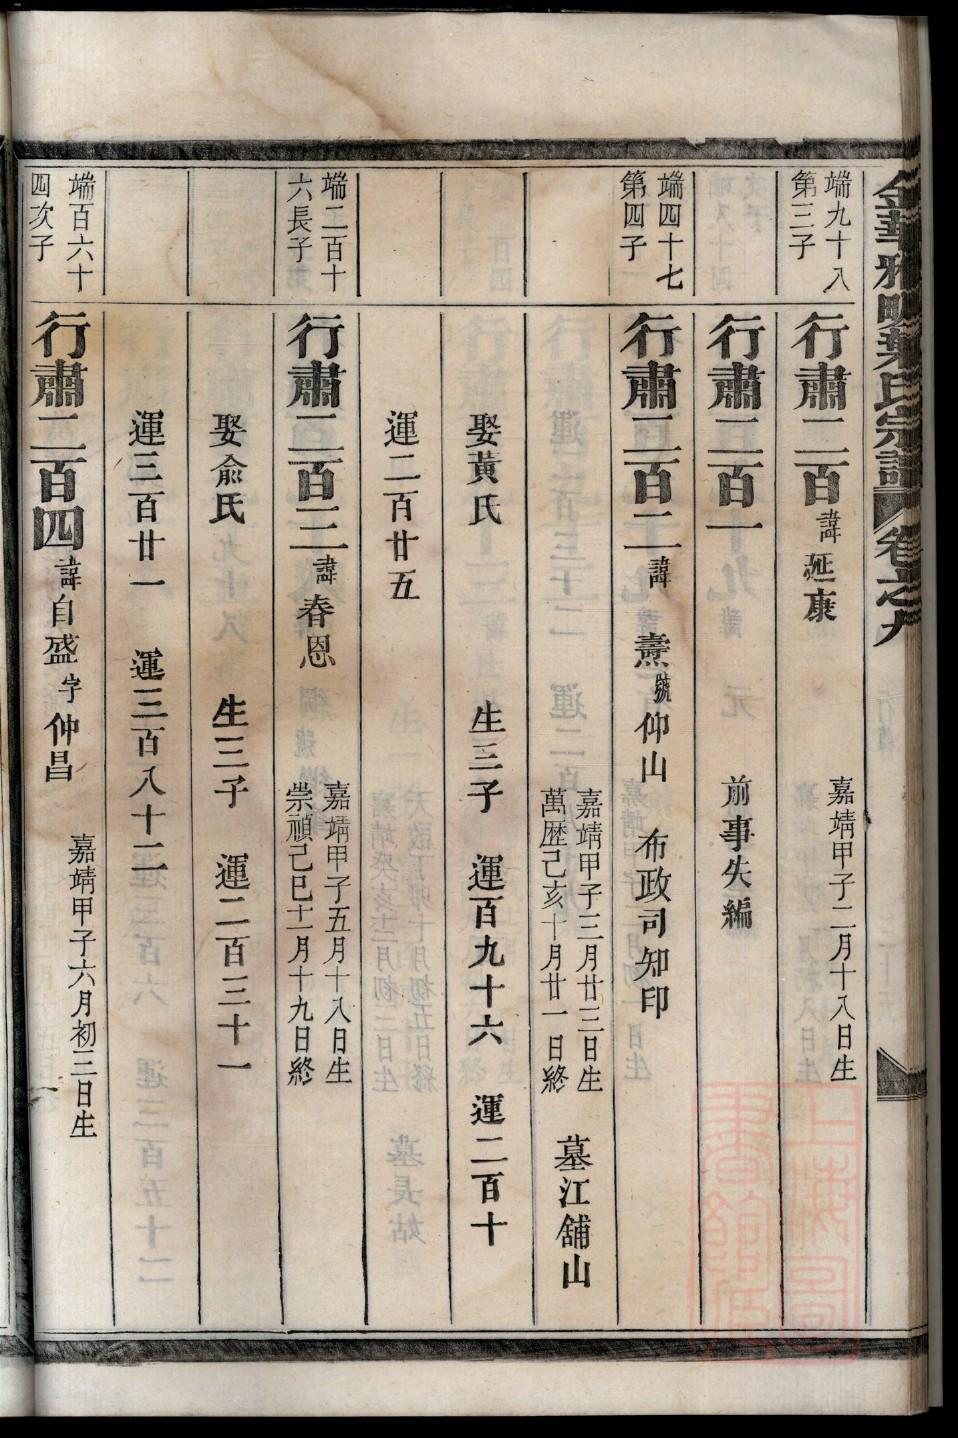 金華雅畈葉氏宗譜 卷之九
端九十八
第三子
行肅二百 諱 延康
嘉靖甲子二月十八日生
行肅二百一
前事失編
端四十七
第四子
行肅二百二 諱 燾 號 仰山 布政司知印
嘉靖甲子三月廿三日生
萬歷己亥十月廿一日終
墓江舖山
娶黃氏 生三子 運百九十六 運二百十
運二百廿五
端二百十
六長子
行肅二百三 諱 春恩
嘉靖甲子五月十八日生
崇禎己巳十一月十九日終
娶俞氏 生三子 運二百三十一
運三百廿一 運三百八十二
端百六十
四次子
行肅二百四 諱 自盛 字 仲昌
嘉靖甲子六月初三日生
上海圖書館藏